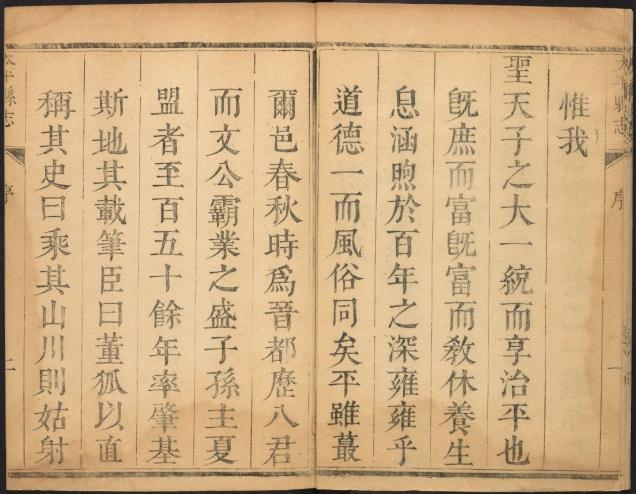 惟我
聖天子之大一統而享治平也
既庶而富既富而教休養生
息涵煦於百年之深雍雍乎
道德一而風俗同矣平雖蕞
爾邑春秋時為晉都歷八君
而文公霸業之盛子孫主夏
盟者至百五十餘年率肇基
斯地其載筆臣曰董狐以直
稱其史曰乘其山川則姑射
縣志
序
一
縣志
序
二